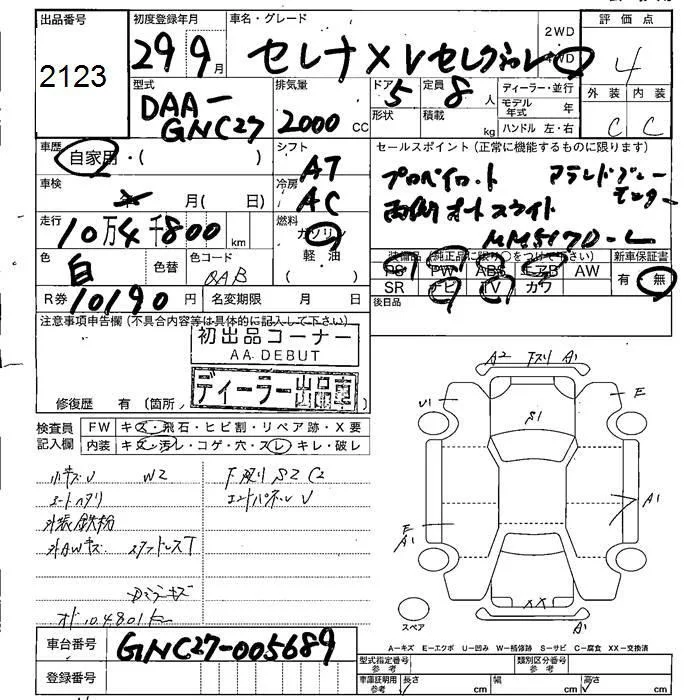 出品番号
2123
初度登録年月
29 9月
車名・グレード
セレナ X Vセレクション
2WD
4WD
評価点
4
外装 内装
C C
型式
DAA-
GNC27
排気量
2000 CC
ドア 5
形状
定員 8 人
積載 kg
ディーラー・並行
モデル年式 年
ハンドル 左・右
車歴
自家用・( )
シフト
AT
セールスポイント (正常に機能するものに限ります)
プロパイロット
両側オートスライド
MM517D-L
車検
月( 日)
冷房
AC
走行
10万4千800 km
燃料
ガソリン
軽油
色
白
色替
色コード
QAB
装備品 (純正品に限り○をつけて下さい)
PS PW ABS エアB AW
SR ナビ TV カワ
新車保証書
有 無
R券 10190円
名変期限 月 日
後日品
注意事項申告欄 (不具合内容等は具体的に記入して下さい)
初出品コーナー
AA DEBUT
ディーラー出品車
修復歴 有 (箇所
検査員記入欄
FW キズ・飛石・ヒビ割・リペア跡・X要
内装 キズ・汚レ・コゲ・穴・スレ・キレ・破レ
小キズV W2
シートヘタリ
外装鉄粉
外AWキズ スタッドレスT
下廻りS2 C2
エンドパネルV
オド104801km
A2 下スリ A1
U1
E
S1
A1
E
A1
XX
A1
スペア
A-キズ E-エクボ U-凹み W-補修跡 S-サビ C-腐食 XX-交換済
車台番号
GNC27-005689
登録番号
型式指定番号 参考
類別区分番号 参考
車庫証明用 参考
長さ cm
幅 cm
高さ cm